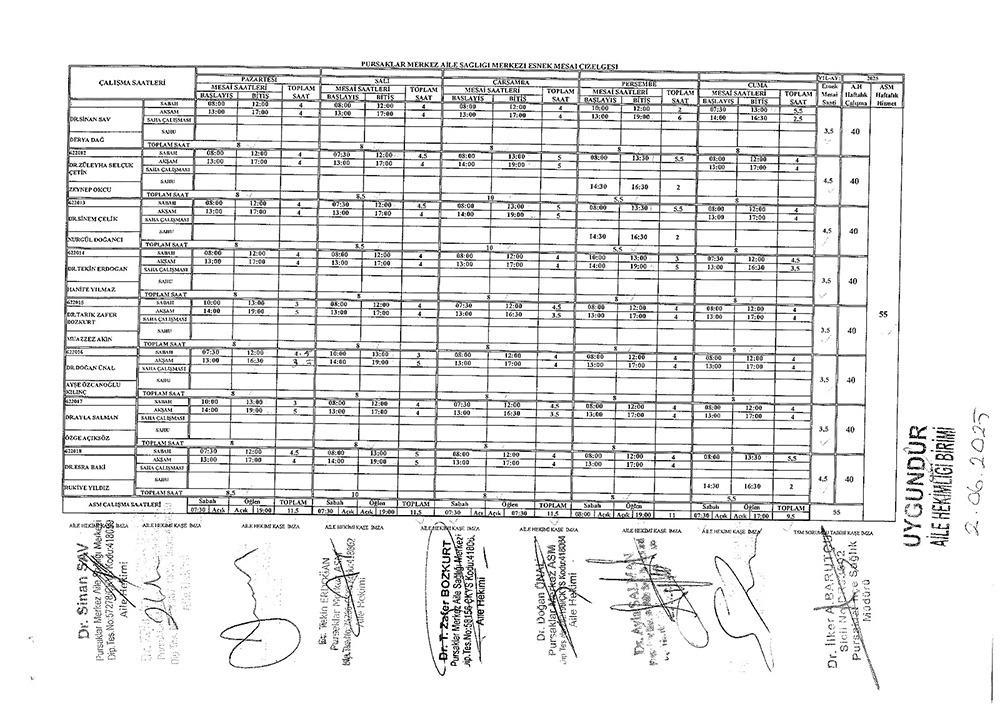 PURSAKLAR MERKEZ AİLE SAĞLIĞI MERKEZİ ESNEK MESAİ ÇİZELGESİ
ÇALIŞMA SAATLERİ PAZARTESİ SALI ÇARŞAMBA PERŞEMBE CUMA YIL-AY: 2025
MESAİ SAATLERİ TOPLAM SAAT MESAİ SAATLERİ TOPLAM SAAT MESAİ SAATLERİ TOPLAM SAAT MESAİ SAATLERİ TOPLAM SAAT MESAİ SAATLERİ TOPLAM SAAT Esnek Mesai Saati A.H Haftalık Çalışma ASM Haftalık Hizmet
BAŞLAYIŞ BİTİŞ BAŞLAYIŞ BİTİŞ BAŞLAYIŞ BİTİŞ BAŞLAYIŞ BİTİŞ BAŞLAYIŞ BİTİŞ
SABAH 08:00 12:00 4 08:00 12:00 4 08:00 12:00 4 10:00 12:00 2 07:30 13:00 5,5
DR.SİNAN SAV AKŞAM 13:00 17:00 4 13:00 17:00 4 13:00 17:00 4 13:00 19:00 6 14:00 16:30 2,5
SAHA ÇALIŞMASI
SAHU 3,5 40
DERYA DAĞ
TOPLAM SAAT 8 8 8 8 8
622012 SABAH 08:00 12:00 4 07:30 12:00 4,5 08:00 13:00 5 08:00 13:30 5,5 08:00 12:00 4
DR.ZÜLEYHA SELÇUK ÇETİN AKŞAM 13:00 17:00 4 13:00 17:00 4 14:00 19:00 5 13:00 17:00 4
SAHA ÇALIŞMASI
SAHU 4,5 40
ZEYNEP OKCU 14:30 16:30 2
TOPLAM SAAT 8 8,5 10 5,5 8
622013 SABAH 08:00 12:00 4 07:30 12:00 4,5 08:00 12:00 5 08:00 13:30 5,5 08:00 12:00 4
DR.SİNEM ÇELİK AKŞAM 13:00 17:00 4 13:00 17:00 4 14:00 19:00 5 13:00 17:00 4
SAHA ÇALIŞMASI
SAHU 4,5 40
NURGÜL DOĞANCI 14:30 16:30 2
TOPLAM SAAT 8 8,5 10 5,5 8
622014 SABAH 08:00 12:00 4 08:00 12:00 4 08:00 12:00 4 10:00 13:00 3 07:30 12:00 4,5
DR.TEKİN ERDOĞAN AKŞAM 13:00 17:00 4 13:00 17:00 4 13:00 17:00 4 14:00 19:00 5 13:00 16:30 3,5
SAHA ÇALIŞMASI
SAHU 3,5 40
HANİFE YILMAZ
TOPLAM SAAT 8 8 8 8 8
622015 SABAH 10:00 13:00 3 08:00 12:00 4 07:30 12:00 4,5 08:00 12:00 4 08:00 12:00 4
DR.TARIK ZAFER BOZKURT AKŞAM 14:00 19:00 5 13:00 17:00 4 13:00 16:30 3,5 13:00 17:00 4 13:00 17:00 4 55
SAHA ÇALIŞMASI
SAHU 3,5 40
MUAZZEZ AKIN
TOPLAM SAAT 8 8 8 8 8
622016 SABAH 07:30 12:00 4.5 10:00 13:00 3 08:00 12:00 4 08:00 12:00 4 08:00 12:00 4
DR.DOĞAN ÜNAL AKŞAM 13:00 16:30 14:00 19:00 5 13:00 17:00 4 13:00 17:00 4 13:00 17:00 4
SAHA ÇALIŞMASI
SAHU 3,5 40
AYŞE ÖZCANOĞLU KILINÇ
TOPLAM SAAT 8 8 8 8 8
622017 SABAH 10:00 13:00 3 08:00 12:00 4 07:30 12:00 4,5 08:00 12:00 4 08:00 12:00 4
DR.AYLA SALMAN AKŞAM 14:00 19:00 5 13:00 17:00 4 13:00 16:30 3,5 13:00 17:00 4 13:00 17:00 4
SAHA ÇALIŞMASI
SAHU 3,5 40
ÖZGE AÇIKSÖZ
TOPLAM SAAT 8 8 8 8 8
622018 SABAH 07:30 12:00 4,5 08:00 13:00 5 08:00 12:00 4 08:00 12:00 4 08:00 13:30 5,5
DR.ESRA BAKİ AKŞAM 13:00 17:00 4 14:00 19:00 5 13:00 17:00 4 13:00 17:00 4
SAHA ÇALIŞMASI
SAHU 4,5 40
RUKİYE YILDIZ 14:30 16:30 2
TOPLAM SAAT 8,5 10 8 8 5,5
ASM ÇALIŞMA SAATLERİ Sabah Öğlen TOPLAM Sabah Öğlen TOPLAM Sabah Öğlen TOPLAM Sabah Öğlen TOPLAM Sabah Öğlen TOPLAM 55
07:30 Açık Açık 19:00 11.5 07:30 Açık Açık 19:00 11.5 07:30 07:30 11,5 08:00 Açık Açık 19:00 11 07:30 Açık Açık 17:00 9.5
AİLE HEKİMİ KAŞE İMZA AİLE HEKİMİ KAŞE İMZA AİLE HEKİMİ KAŞE İMZA AİLE HEKİMİ KAŞE İMZA AİLE HEKİMİ KAŞE İMZA AİLE HEKİMİ KAŞE İMZA AİLE HEKİMİ KAŞE İMZA
Dr. Sinan SAV
Pursaklar Merkez Aile Sağlığı Merkezi
Aile Hekimi
Dr. Tekin ERDOĞAN
Pursaklar Merkez ASM
Aile Hekimi
Dr. T. Zafer BOZKURT
Pursaklar Merkez Aile Sağlığı Merkezi
Aile Hekimi
Dr. Doğan ÜNAL
Pursaklar Merkez ASM
Aile Hekimi
Dr. Ayla SALMAN
Dr. İlker A.BARUTCU
Pursaklar İlçe Sağlık
Müdürü
UYGUNDUR
AİLE HEKİMLİĞİ BİRİMİ
2.06.2025